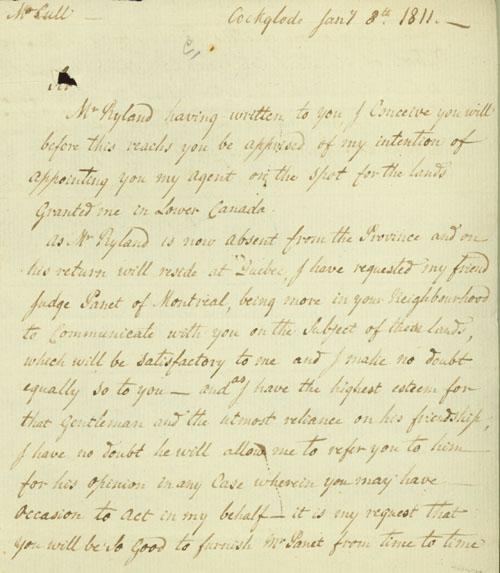 Mr Lull — Cockglode Jany 8th 1811. —
Sir
Mr Ryland having written to you I Conceive you will
before this reachs you be apprised of my intention of
appointing you my agent on the spot for the lands
Granted me in Lower Canada.
as Mr Ryland is now absent from the Province and on
his return will reside at Quebec, I have requested my friend
Judge Panet of Montreal, being more in your Neighbourhood
to Communicate with you on the Subject of these lands,
which will be satisfactory to me and I make no doubt
equally so to you — and as I have the highest esteem for
that Gentleman and the utmost reliance on his friendship,
I have no doubt he will allow me to refer you to him
for his opinion in any Case wherein you may have
occasion to act in my behalf — it is my request that
you will be So Good to furnish Mr Panet from time to time